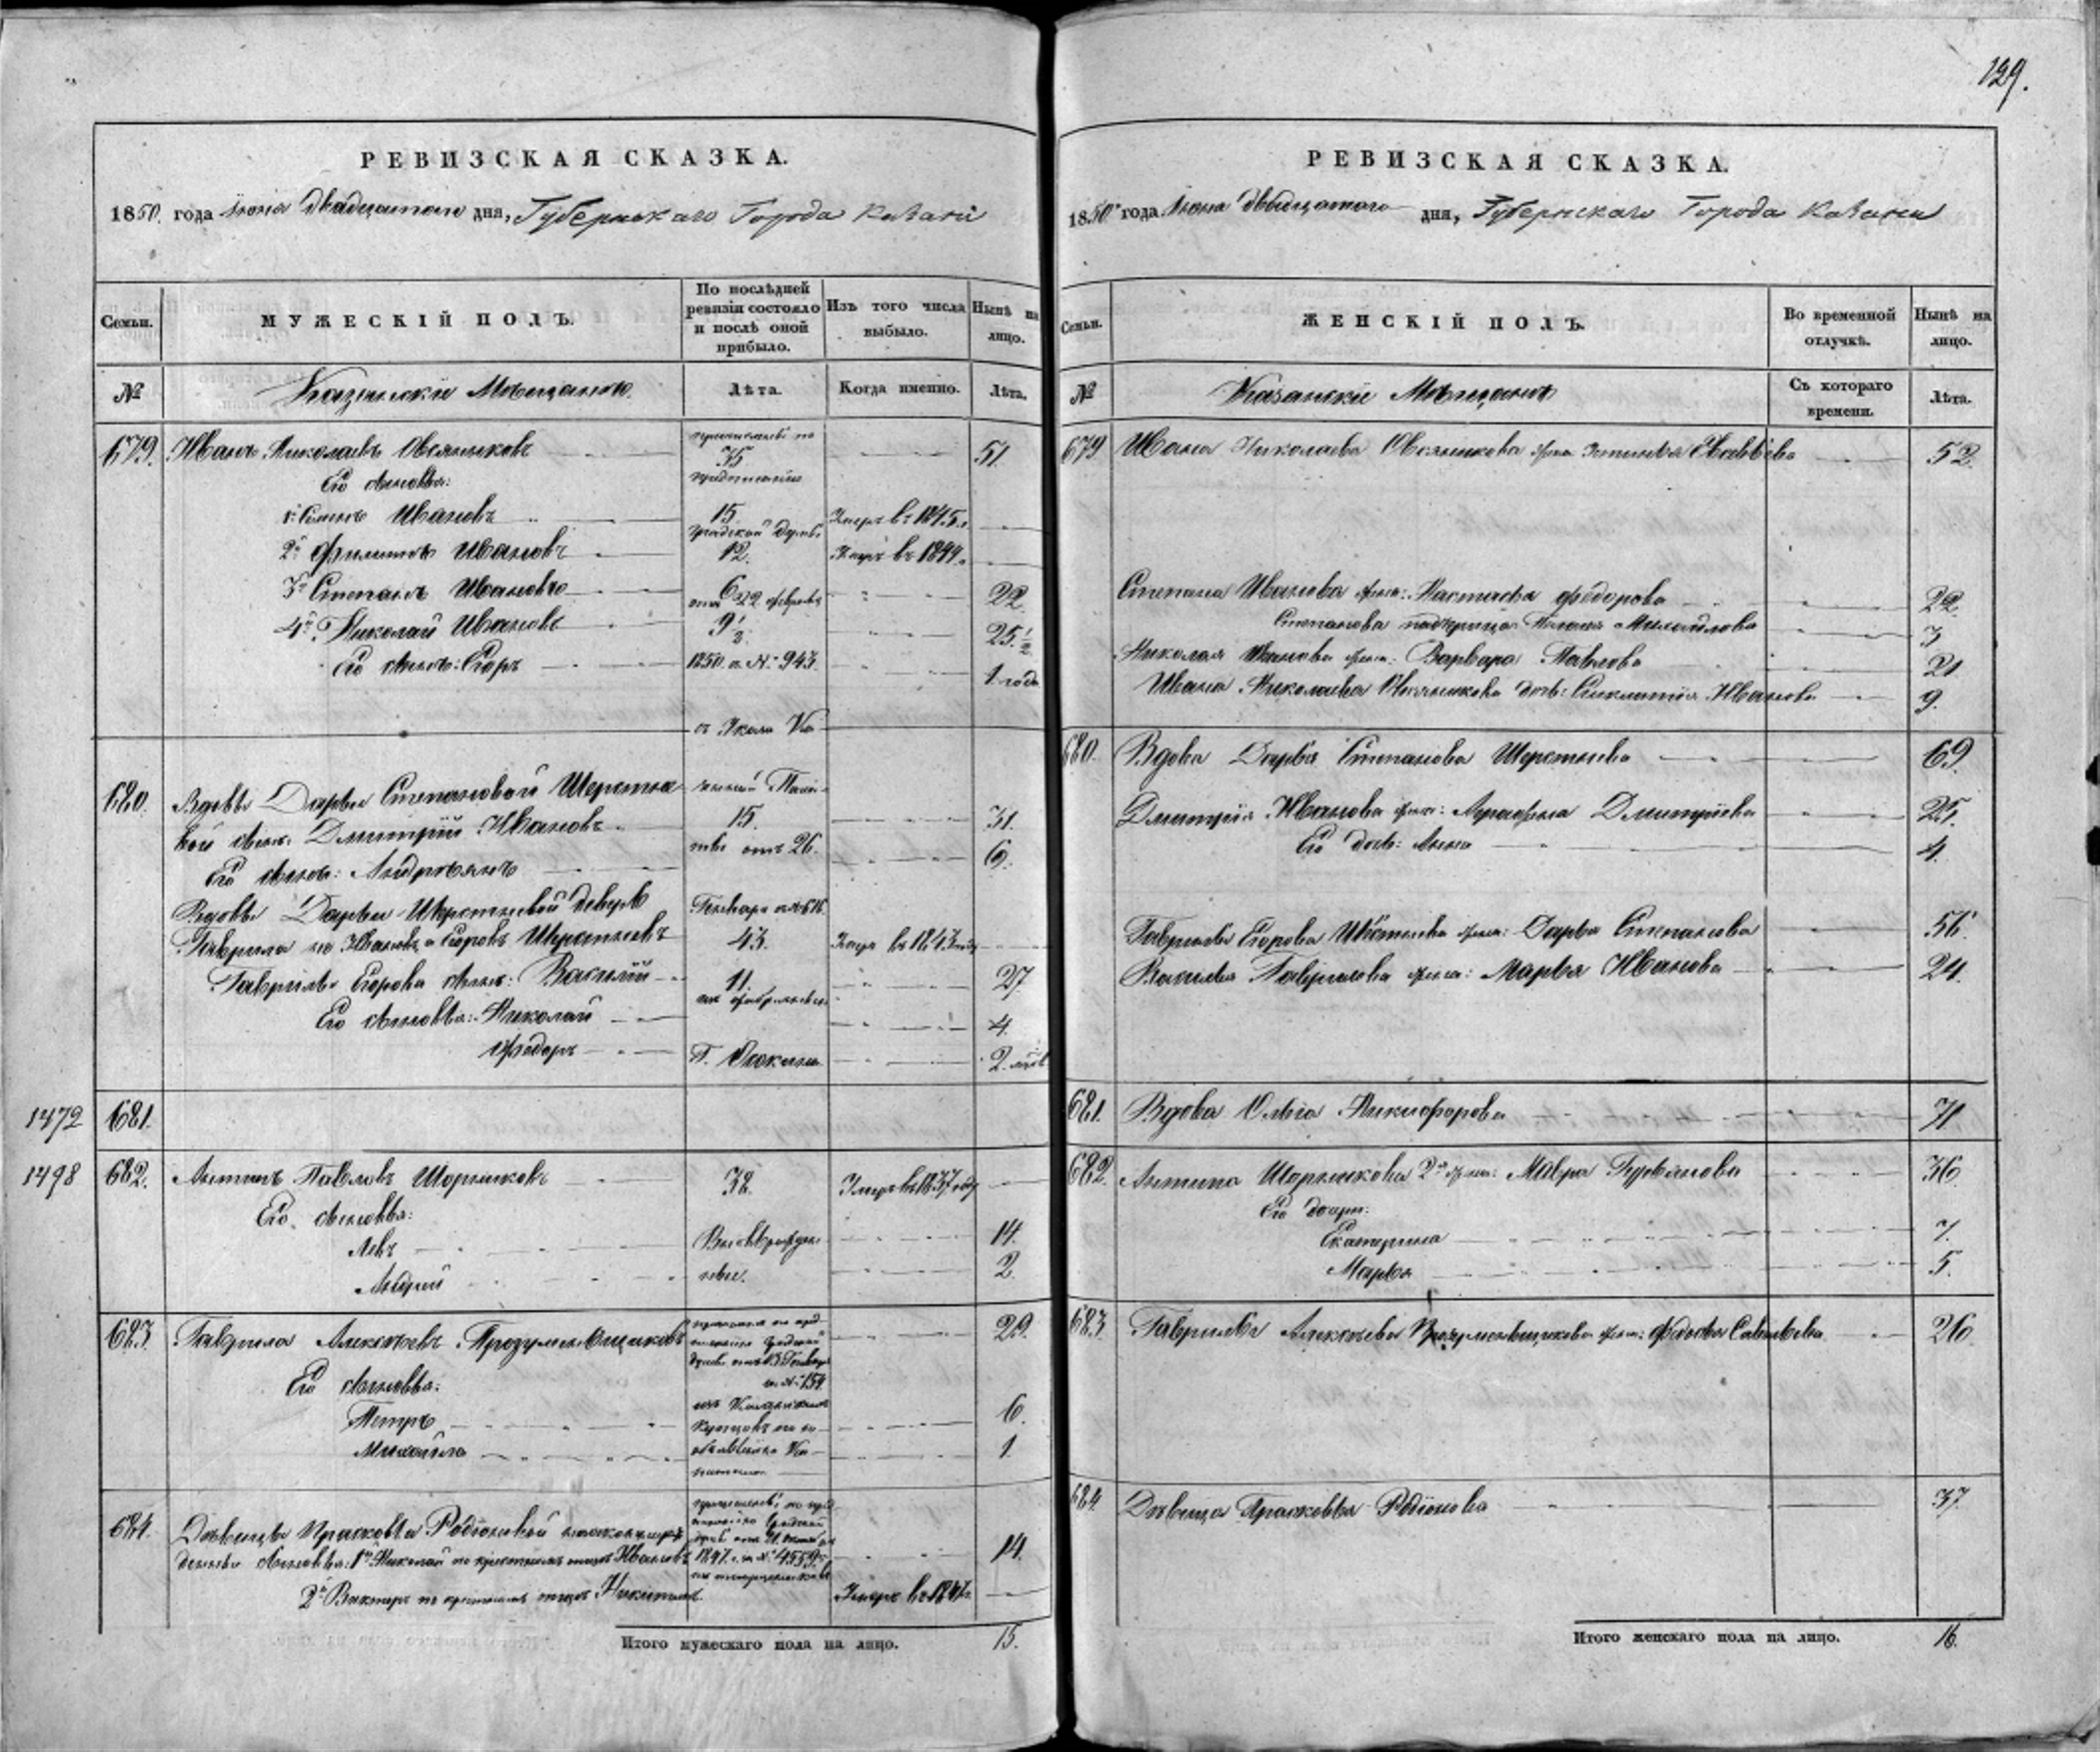 129.
РЕВИЗСКАЯ СКАЗКА.
1850. года Іюня двадцатаго дня, Губернскаго Города Казани
Семьи.
МУЖЕСКІЙ ПОЛЪ.
По послѣдней ревизіи состояло и послѣ оной прибыло.
Изъ того числа выбыло.
Нынѣ на лицо.
№
Казанскіе Мѣщане.
Лѣта.
Когда именно.
Лѣта.
679. Иванъ Николаевъ Овсянниковъ 35 51.
Его сыновья:
1й Семенъ Ивановъ 15 Умеръ въ 1845.
Градской Думы
2й Филиппъ Ивановъ 12. Умеръ въ 1844.
3й Степанъ Ивановъ 6 22.
отъ 22 февраля
4й Николай Ивановъ 9½ 25½
Его сынъ: Егоръ 1850. за № 943. 1 года
680. Вдовы Дарьи Степановой Шерстне
вой сынъ: Дмитрій Ивановъ 15. 31.
отъ 26.
Его сынъ: Андреянъ 6.
Вдовы Дарьи Шерстневой деверь
Гаврила Егоровъ Шерстневъ 43. Умеръ въ 1843 году
Гаврилы Егорова сынъ: Василій 11. 27
Его сыновья: Николай 4.
Федоръ 2.
1472 681.
1498 682. Антипъ Павловъ Шорниковъ 38. Умеръ въ 1837 году
Его сыновья:
Левъ 14.
Андрей 2.
683. Гаврила Алексѣевъ Прозументщиковъ 29.
за № 159
Его сыновья:
Петръ 6.
Михайла 1.
684. Дѣвицы Прасковьи Родіоновой незаконнорож
денные сыновья: 1й Николай по крестномъ отцѣ Ивановъ 1847. г. за № 4559. 14.
2й Викторъ по крестномъ отцѣ Никитинъ. Умеръ въ 1847.
Итого мужескаго пола на лицо. 15.
РЕВИЗСКАЯ СКАЗКА.
1850 года Іюня двадцатаго дня, Губернскаго Города Казани
Семьи.
ЖЕНСКІЙ ПОЛЪ.
Во временной отлучкѣ.
Нынѣ на лицо.
№
Казанскіе Мѣщане
Съ котораго времени.
Лѣта.
679 Ивана Николаева Овсянникова жена Устинья 52.
Степана Иванова жена: Настасья Федорова 22.
Степанова падчерица Михайлова 3
Николая Иванова жена: Варвара Павлова 21
Ивана Николаева Овсянникова дочь: Иванова 9.
680. Вдова Дарья Степанова Шерстнева 69.
Дмитрія Иванова жена: Аграфена Дмитріева 25.
Его дочь: Анна 4.
Гаврилы Егорова Шерстнева жена: Дарья Степанова 56.
Василья Гаврилова жена: Марья Иванова 24.
681. Вдова Ольга Никифорова 71
682. Антипа Шорникова 2я жена: Мавра 36.
Его дочери:
Екатерина 7.
Марья 5.
683. Гаврилы Алексѣева Прозументщикова жена: Федосья Савельева 26.
684. Дѣвица Прасковья Родіонова 37.
Итого женскаго пола на лицо. 16.